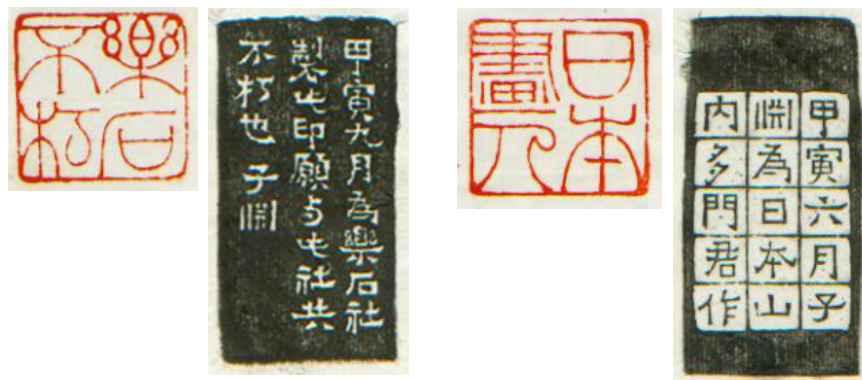 樂石
不朽
甲寅九月為樂石社
製此印願与此社共
不朽也 子淵
日本
畫人
甲寅六月子
淵為日本山
内多門君作